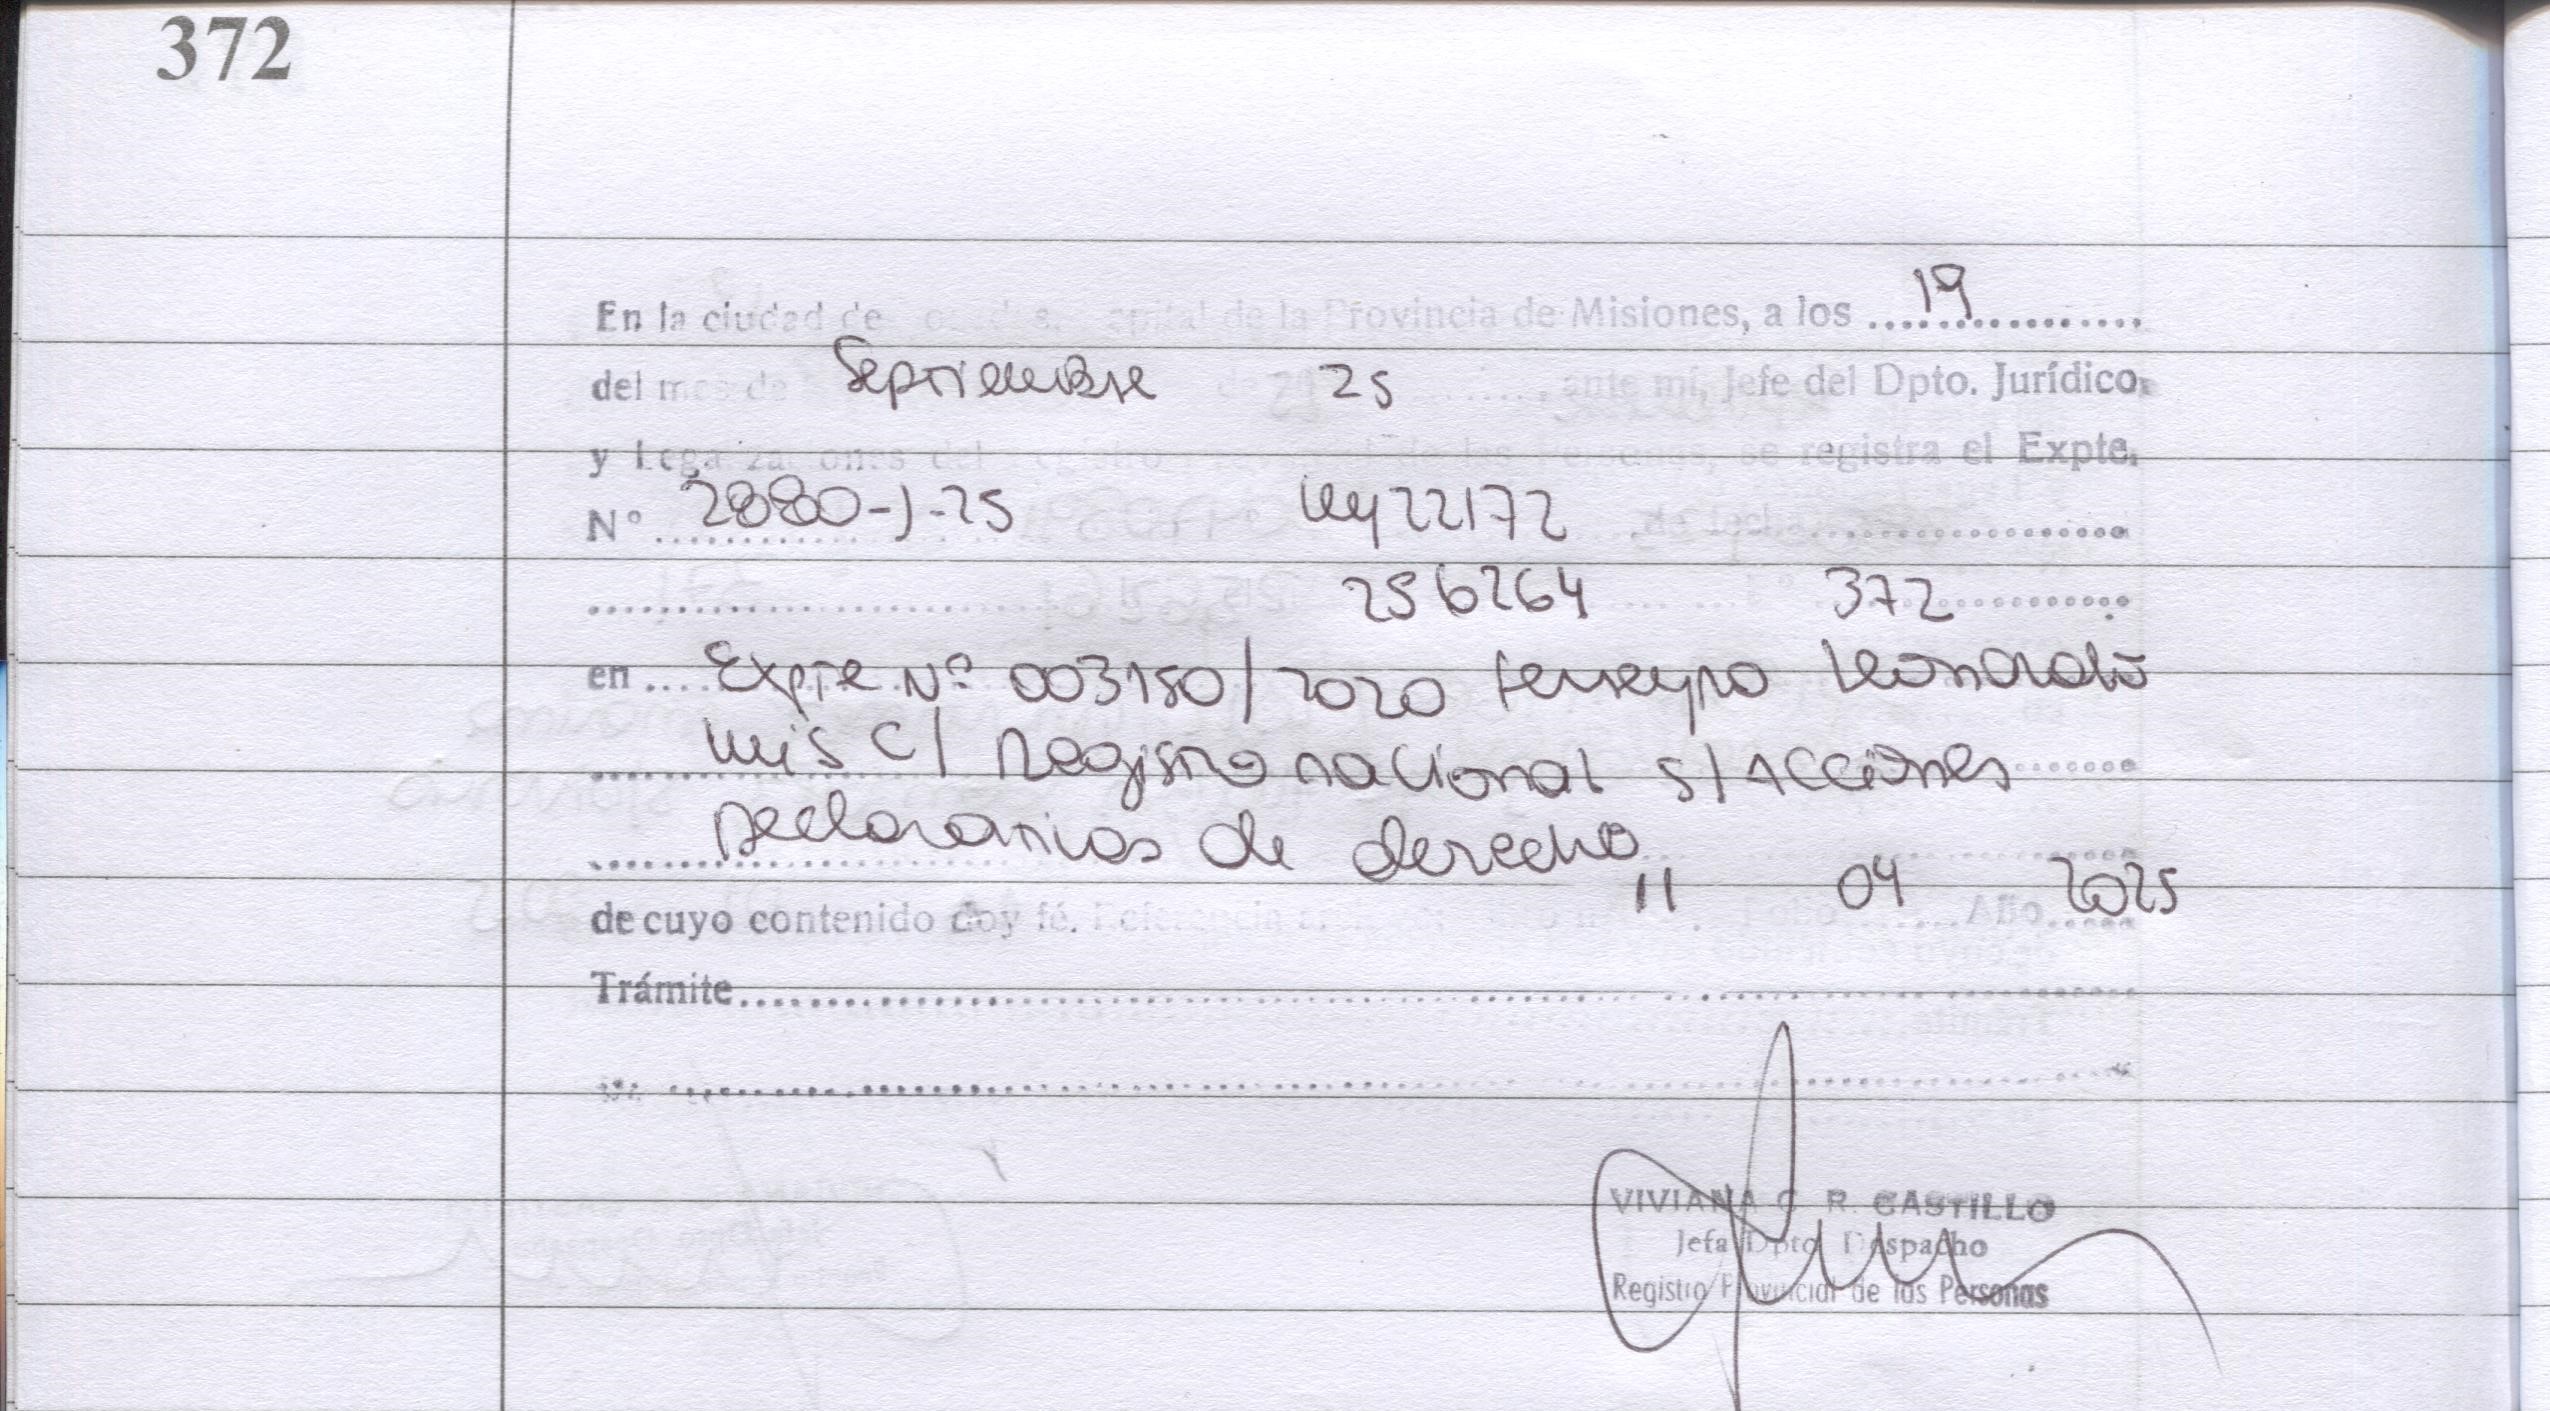 372
En la ciudad de Provincia de Misiones, a los 19
del mes de Septiembre de 25, ante mí, Jefe del Dpto. Jurídico
y Legalizaciones del Registro de las Personas, se registra el Expte.
N° 2880-J-25 Ley 22172 de fecha
256264 372
en Expte Nº 003150/2020 ferreyra Leonardo
Luis C/ Registro nacional s/ Acciones
Declarativas de derecho
11 04 2025
de cuyo contenido doy fé. Referencia Folio Año
Trámite
VIVIANA C. R. CASTILLO
Jefa Dpto. Despacho
Registro Provincial de las Personas